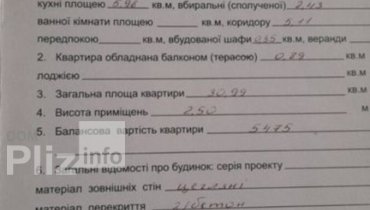 кухні площею 5.96 кв.м, вбиральні (сполученої) 2.43
ванної кімнати площею кв.м, коридору 5.11
передпокою кв.м, вбудованої шафи 0.35 кв.м, веранди
2. Квартира обладнана балконом (терасою) 0,89 кв.м
лоджією кв.м
3. Загальна площа квартири 30,99 кв.м
4. Висота приміщень 2,50 м
5. Балансова вартість квартири 5475
Pliz info
6. Загальні відомості про будинок: серія проекту
матеріал зовнішніх стін цегляні
матеріал перекриття з/бетон